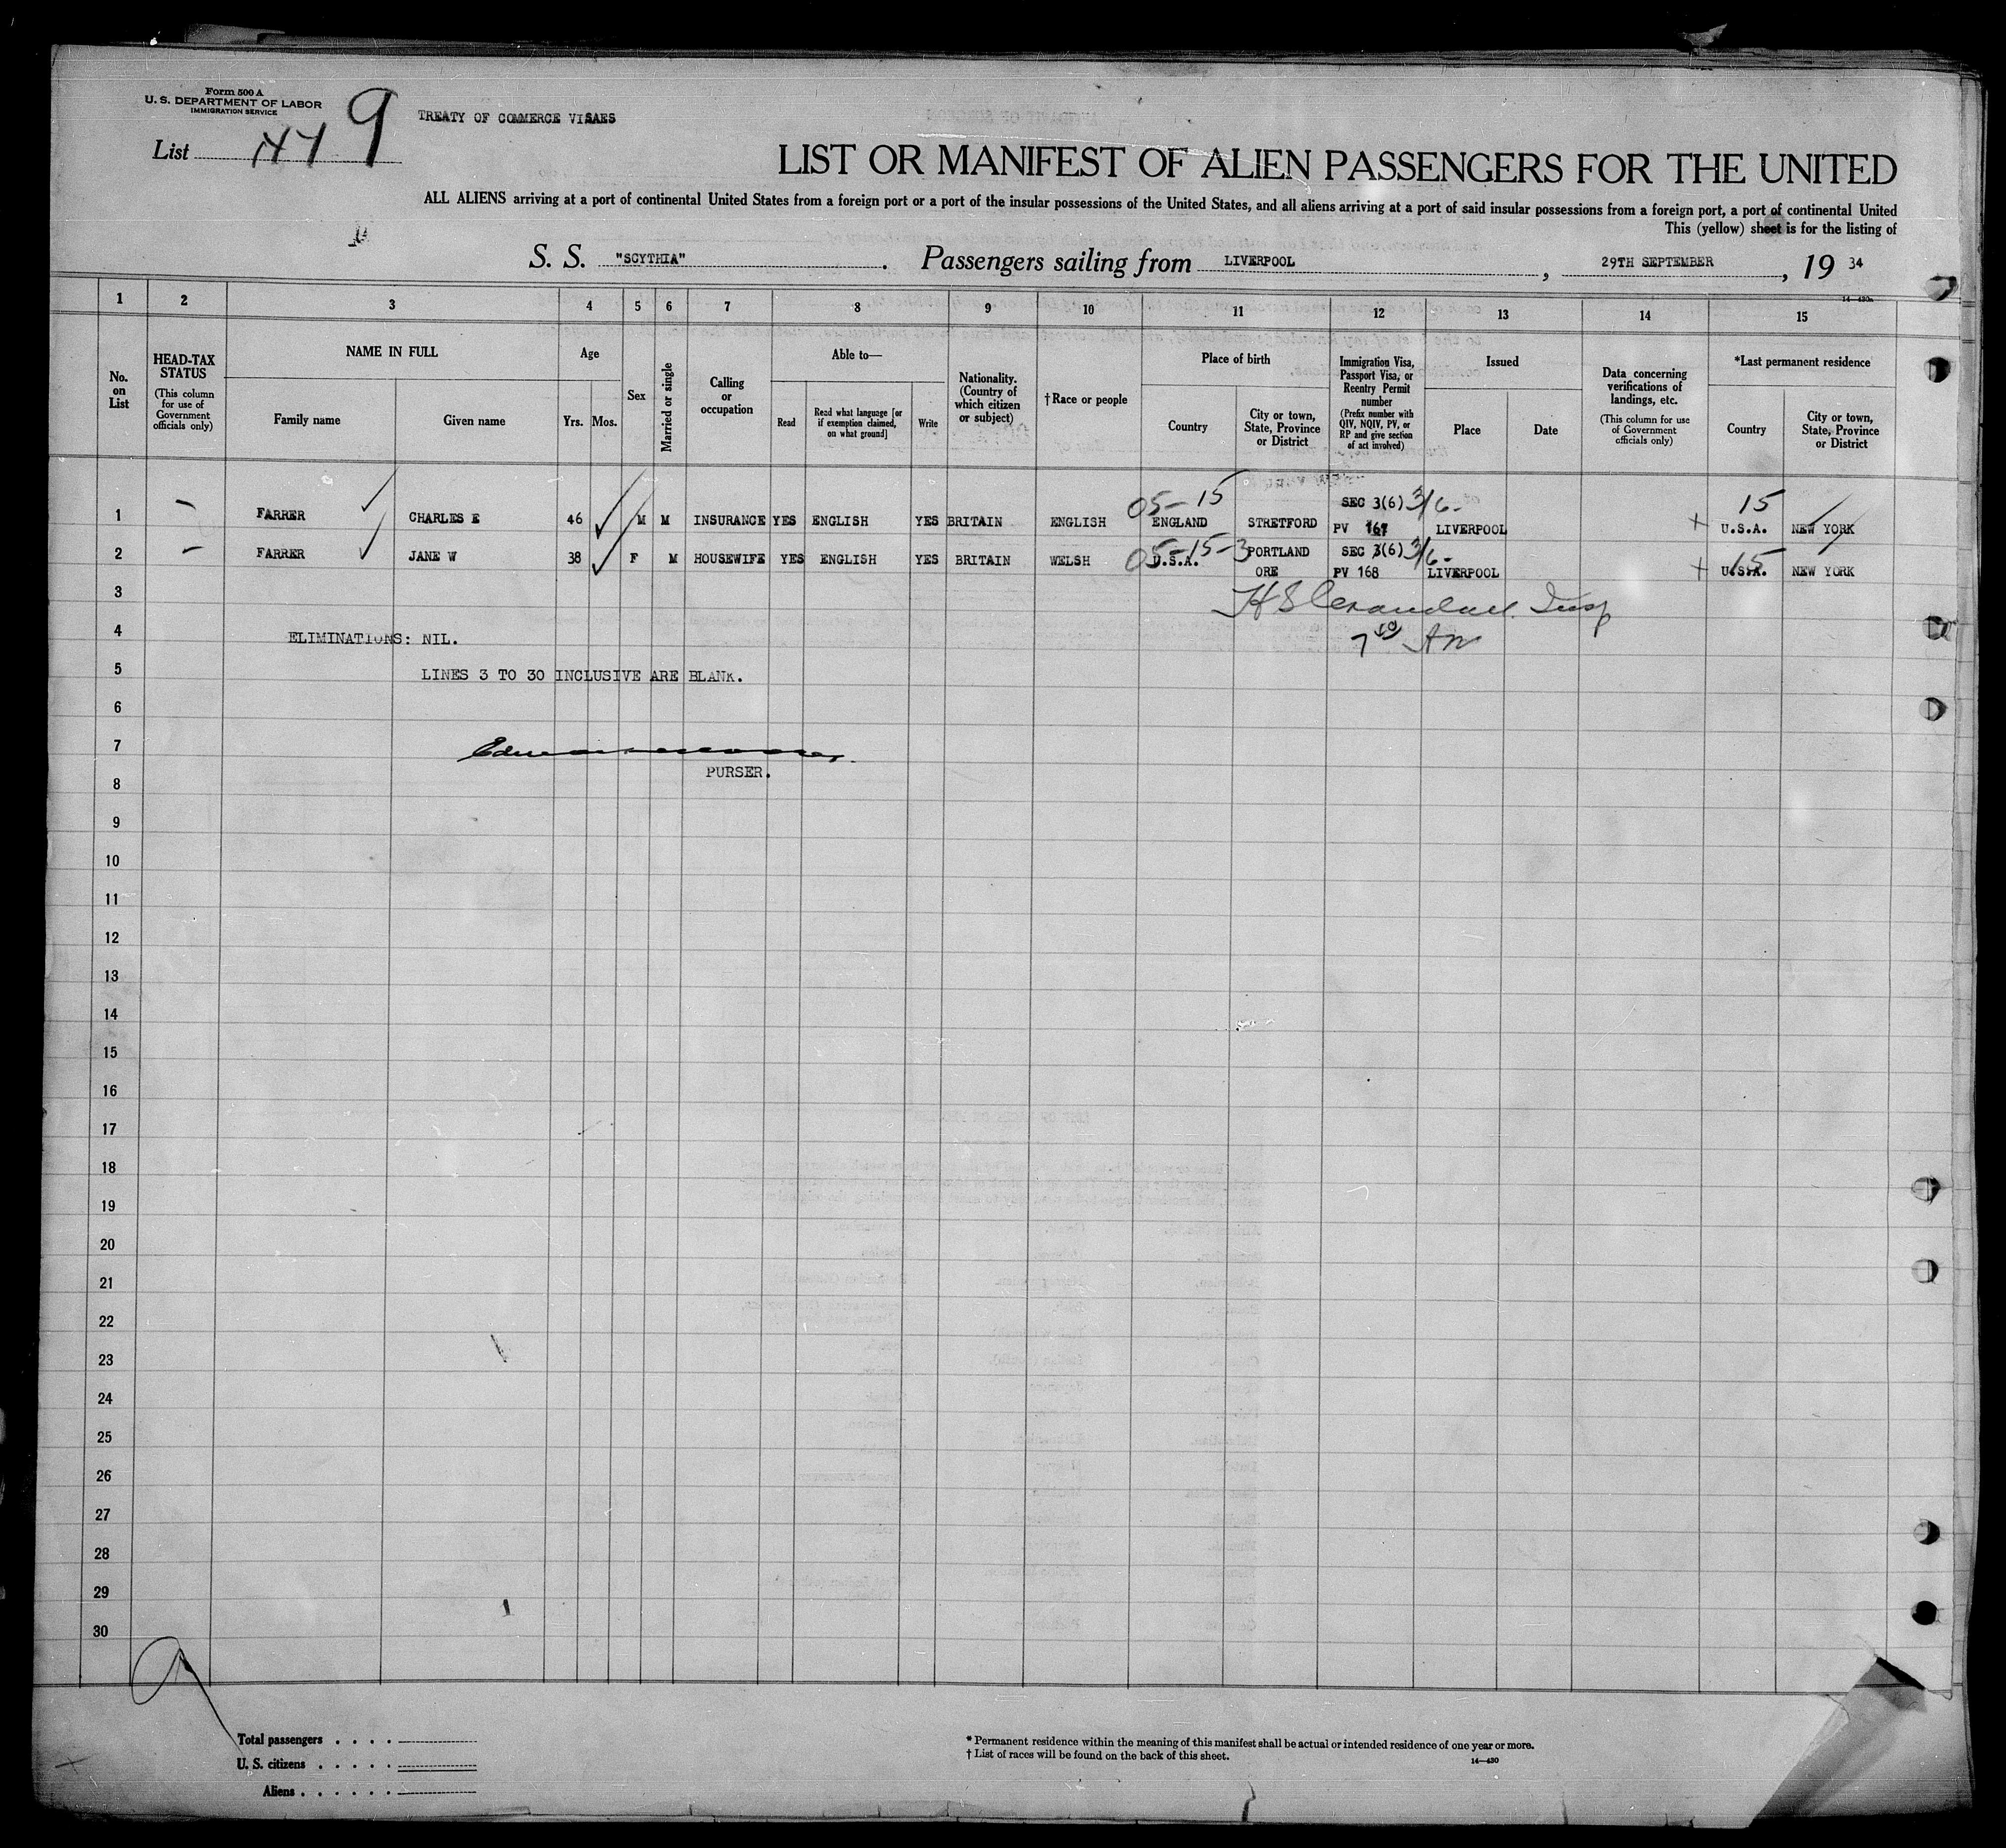 Form 500 A
U. S. DEPARTMENT OF LABOR
IMMIGRATION SERVICE
List 9
TREATY OF COMMERCE VISAES
LIST OR MANIFEST OF ALIEN PASSENGERS FOR THE UNITED
ALL ALIENS arriving at a port of continental United States from a foreign port or a port of the insular possessions of the United States, and all aliens arriving at a port of said insular possessions from a foreign port, a port of continental United
This (yellow) sheet is for the listing of
S. S. "SCYTHIA". Passengers sailing from LIVERPOOL, 29TH SEPTEMBER, 19 34
14—430a
1 2 3 4 5 6 7 8 9 10 11 12 13 14 15
No. on List
HEAD-TAX STATUS
(This column for use of Government officials only)
NAME IN FULL
Family name Given name
Age
Yrs. Mos.
Sex
Married or single
Calling or occupation
Able to—
Read
Read what language [or if exemption claimed, on what ground]
Write
Nationality. (Country of which citizen or subject)
†Race or people
Place of birth
Country
City or town, State, Province or District
Immigration Visa, Passport Visa, or Reentry Permit number
(Prefix number with QIV, NQIV, PV, or RP and give section of act involved)
Issued
Place Date
Data concerning verifications of landings, etc.
(This column for use of Government officials only)
*Last permanent residence
Country
City or town, State, Province or District
05-15 SEC 3(6) 3/6- 15
1 FARRER CHARLES E 46 M M INSURANCE YES ENGLISH YES BRITAIN ENGLISH ENGLAND STRETFORD PV 167 LIVERPOOL U.S.A. NEW YORK
05-15-3 PORTLAND SEC 3(6) 3/6-
2 FARRER JANE W 38 F M HOUSEWIFE YES ENGLISH YES BRITAIN WELSH U.S.A. ORE PV 168 LIVERPOOL 15 U.S.A. NEW YORK
3 Insp
4 ELIMINATIONS: NIL.
5 LINES 3 TO 30 INCLUSIVE ARE BLANK.
6
7
PURSER.
8
9
10
11
12
13
14
15
16
17
18
19
20
21
22
23
24
25
26
27
28
29
30
Total passengers . . . .
U. S. citizens . . . . .
Aliens . . . . . .
* Permanent residence within the meaning of this manifest shall be actual or intended residence of one year or more.
† List of races will be found on the back of this sheet.
14—430